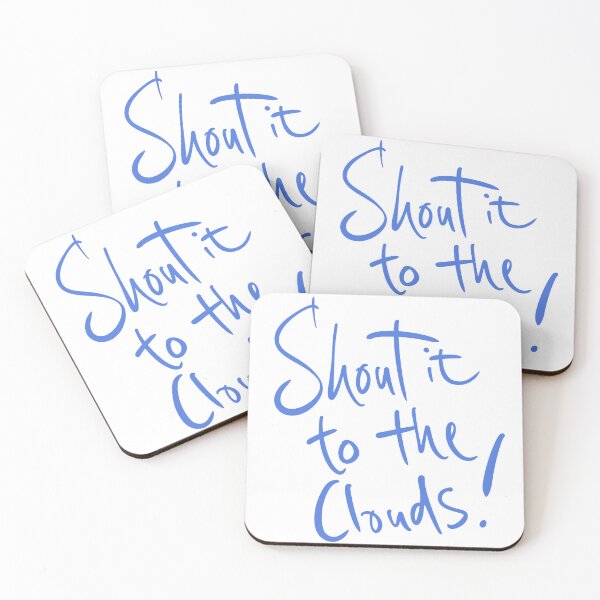 Shout it
the
Shout it
to the
!
Shout it
to the
Clou
Shout it
to the
Clouds!